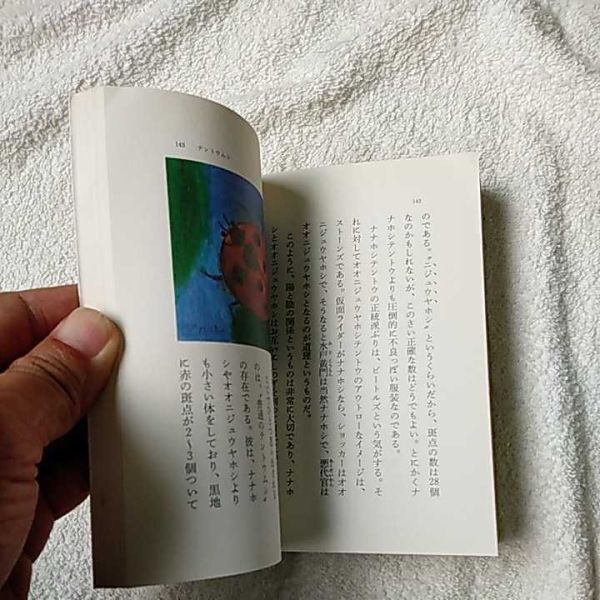 142
のである。〝ニジュウヤホシ〟というくらいだから、斑点の数は28個
なのかもしれないが、このさい正確な数はどうでもよい。とにかくナ
ナホシテントウよりも圧倒的に不良っぽい服装なのである。
ナナホシテントウの正統派ぶりは、ビートルズという気がする。そ
れに対してオオニジュウヤホシテントウのアウトローなイメージは、
ストーンズである。仮面ライダーがナナホシなら、ショッカーはオオ
ニジュウヤホシで、そうなると水戸黄門は当然ナナホシで、悪代官は
オオニジュウヤホシとなるのが道理というものだ。
このように、陽と陰の関係というものは非常に大切であり、ナナホ
シとオオニジュウヤホシはお互いに
143 テントウムシ
のは、〝普通のテントウムシ〟
の存在である。彼は、ナナホ
シやオオニジュウヤホシより
も小さい体をしており、黒地
に赤の斑点が2〜3個ついて